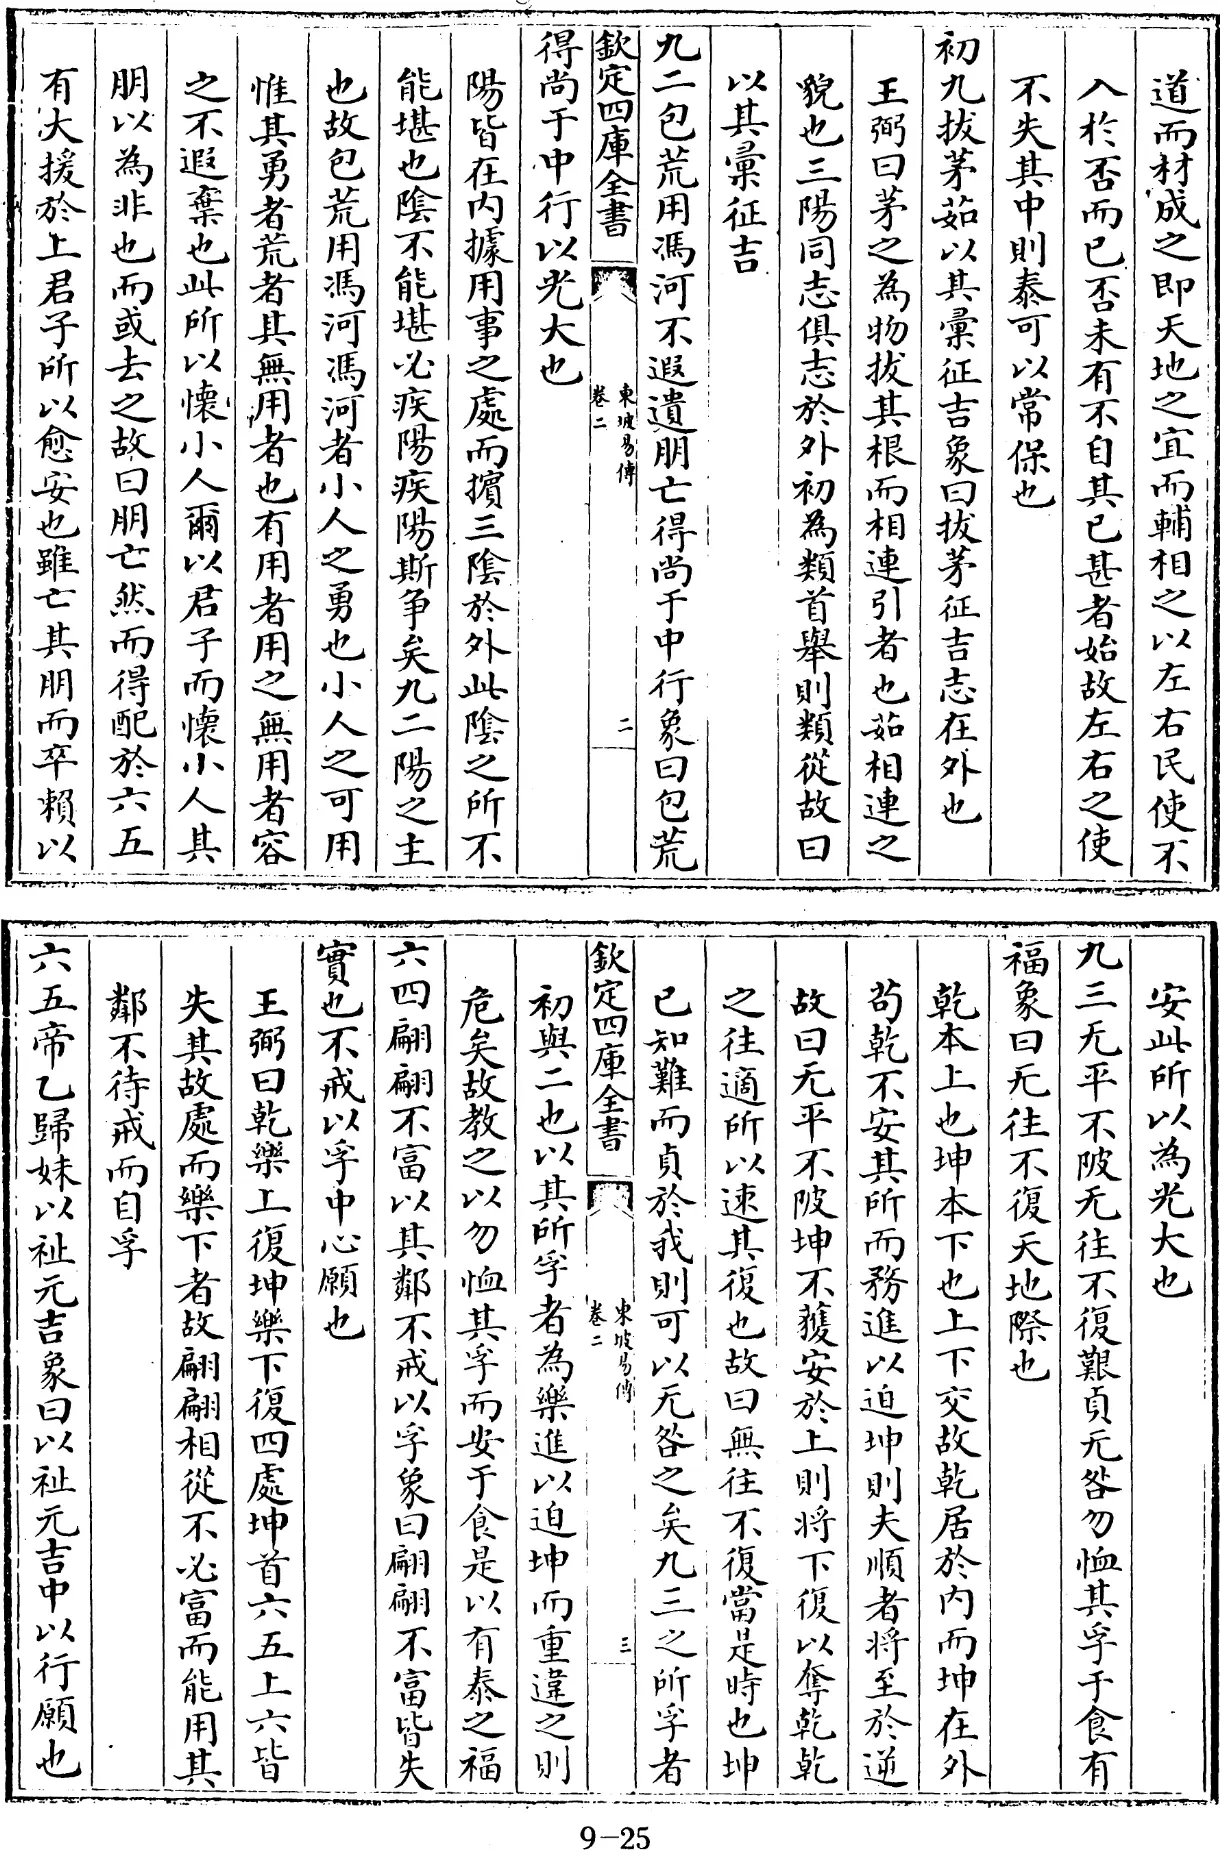 道而材成之即天地之宜而輔相之以左右民使不
入於否而已否未有不自其已甚者始故左右之使
不失其中則泰可以常保也
初九拔茅茹以其彙征吉象曰拔茅征吉志在外也
王弼曰茅之為物拔其根而相連引者也茹相連之
貌也三陽同志俱志於外初為類首舉則類從故曰
以其彙征吉
九二包荒用馮河不遐遺朋亡得尚于中行象曰包荒
欽定四庫全書
東坡易傳
卷二
二
得尚于中行以光大也
陽皆在内據用事之處而擯三陰於外此陰之所不
能堪也陰不能堪必疾陽疾陽斯争矣九二陽之主
也故包荒用馮河馮河者小人之勇也小人之可用
惟其勇者荒者其無用者也有用者用之無用者容
之不遐棄也此所以懷小人爾以君子而懷小人其
朋以為非也而或去之故曰朋亡然而得配於六五
有大援於上君子所以愈安也雖亡其朋而卒賴以
安此所以為光大也
九三无平不陂无往不復艱貞无咎勿恤其孚于食有
福象曰无往不復天地際也
乾本上也坤本下也上下交故乾居於内而坤在外
苟乾不安其所而務進以迫坤則夫順者將至於逆
故曰无平不陂坤不獲安於上則將下復以奪乾乾
之往適所以速其復也故曰無往不復當是時也坤
已知難而貞於我則可以无咎之矣九三之所孚者
欽定四庫全書
東坡易傳
卷二
三
初與二也以其所孚者為樂進以迫坤而重違之則
危矣故教之以勿恤其孚而安于食是以有泰之福
六四翩翩不富以其鄰不戒以孚象曰翩翩不富皆失
實也不戒以孚中心願也
王弼曰乾樂上復坤樂下復四處坤首六五上六皆
失其故處而樂下者故翩翩相從不必富而能用其
鄰不待戒而自孚
六五帝乙歸妹以祉元吉象曰以祉元吉中以行願也
9-25